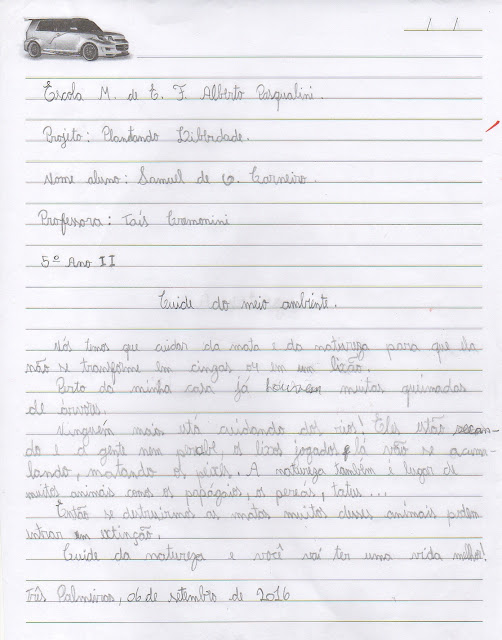 / /
Escola M. de E. F. Alberto Pasqualini.
Projeto: Plantando Liberdade.
Nome aluno: Samuel de O. Carneiro.
Professora: Taís Cremonini
5º Ano II
Cuide do meio ambiente.
Nós temos que cuidar da mata e da natureza para que ela
não se transforme em cinzas ou em um lixão.
Perto da minha casa já houveram muitas queimadas
de árvores.
Ninguém mais está cuidando dos rios! Eles estão secan-
do e a gente nem percebe, os lixos jogados lá vão se acumu-
lando, matando os peixes. A natureza também é lugar de
muitos animais como os papagaios, os preás, tatus...
Então se destruirmos as matas muitos desses animais podem
entrar em extinção.
Cuide da natureza e você vai ter uma vida melhor!
Três Palmeiras, 06 de setembro de 2016